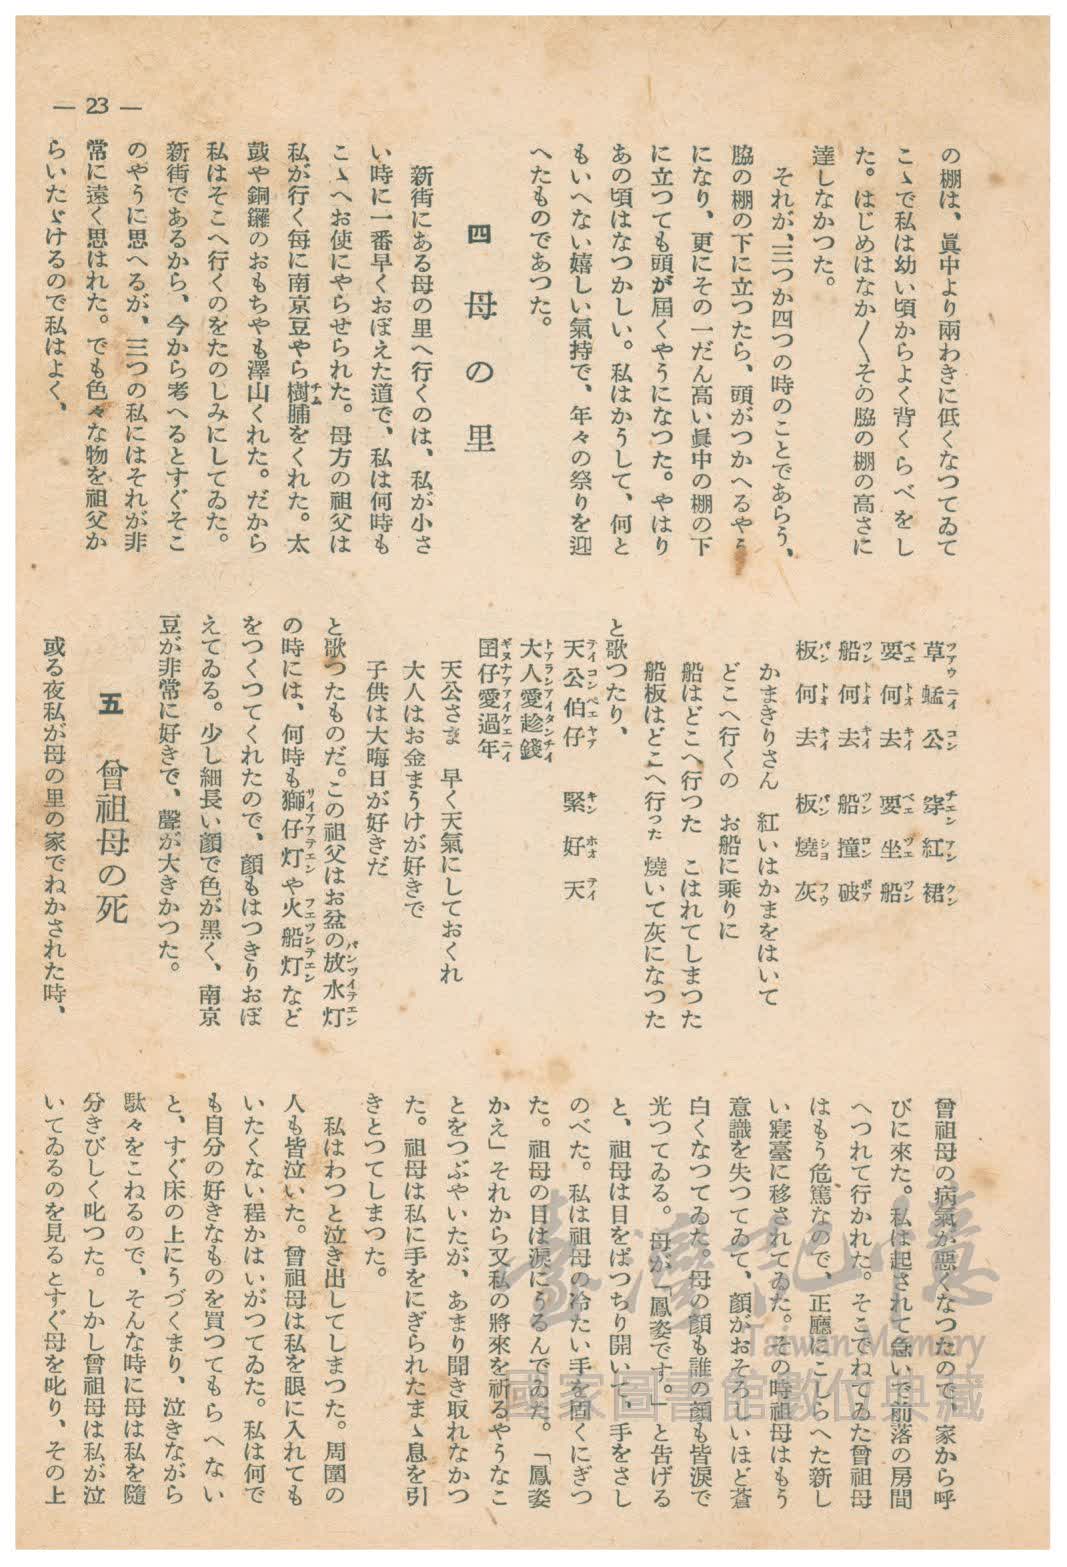 — 23 —
の棚は、眞中より兩わきに低くなつてゐて
こゝで私は幼い頃からよく背くらべをし
た。はじめはなか〱その脇の棚の高さに
達しなかつた。
それが、三つか四つの時のことであらう、
脇の棚の下に立つたら、頭がつかへるやう
になり、更にその一だん高い眞中の棚の下
に立つても頭が屆くやうになつた。やはり
あの頃はなつかしい。私はかうして、何と
もいへない嬉しい氣持で、年々の祭りを迎
へたものであつた。
四 母の里
新街にある母の里へ行くのは、私が小さ
い時に一番早くおぼえた道で、私は何時も
こゝへお使にやらせられた。母方の祖父は
私が行く每に南京豆やら樹脯をくれた。太
チム
鼓や銅鑼のおもちやも澤山くれた。だから
私はそこへ行くのをたのしみにしてゐた。
新街であるから、今から考へるとすぐそこ
のやうに思へるが、三つの私にはそれが非
常に遠く思はれた。でも色々な物を祖父か
らいたゞけるので私はよく、
草蜢公 穿紅裙
ツアウ ニイ コン チエン アン クン
要何去 要坐船
ベエ トオ キイ ベエ ヅエ ツン
船何去 船撞破
ツン トオ キイ ツン ロン ボア
板何去 板燒灰
パン トオ キイ パン シヨ フウ
かまきりさん 紅いはかまをはいて
どこへ行くの お船に乘りに
船はどこへ行つた こはれてしまつた
船板はどこへ行つた 燒いて灰になつた
と歌つたり、
天公伯仔 緊好天
テイ コン ペエ ヤア キン ホオ テイ
大人愛趁錢
トアランアイタンチイ
囝仔愛過年
ギヌナアアイケエニイ
天公さま 早く天氣にしておくれ
大人はお金まうけが好きで
子供は大晦日が好きだ
と歌つたものだ。この祖父はお盆の放水灯
パンツイテエン
の時には、何時も獅仔灯や火船灯など
サイアアテエン フエツンテエン
をつくつてくれたので、顏もはつきりおぼ
えてゐる。少し細長い顏で色が黑く、南京
豆が非常に好きで、聲が大きかつた。
五 曾祖母の死
或る夜私が母の里の家でねかされた時、
曾祖母の病氣が惡くなつたので、家から呼
びに來た。私は起されて急いで前落の房間
へつれて行かれた。そこでねてゐた曾祖母
はもう危篤なので、正廳にこしらへた新し
い寢臺に移されてゐた。その時祖母はもう
意識を失つてゐて、顏がおそろしいほど蒼
白くなつてゐた。母の顏も誰の顏も皆淚で
光つてゐる。母が「鳳姿です。」と告げる
と、祖母は目をぱつちり開いて、手をさし
のべた。私は祖母の冷たい手を固くにぎつ
た。祖母の目は淚にうるんでゐた。「鳳姿
かえ」それから又私の將來を祈るやうなこ
とをつぶやいたが、あまり聞き取れなかつ
た。祖母は私に手をにぎられたまゝ息を引
きとつてしまつた。
私はわつと泣き出してしまつた。周圍の
人も皆泣いた。曾祖母は私を眼に入れても
いたくない程かはいがつてゐた。私は何で
も自分の好きなものを買つてもらへない
と、すぐ床の上にうづくまり、泣きながら
駄々をこねるので、そんな時に母は私を隨
分きびしく叱つた。しかし曾祖母は私が泣
いてゐるのを見るとすぐ母を叱り、その上
臺灣記憶
Taiwan Memory
國家圖書館數位典藏